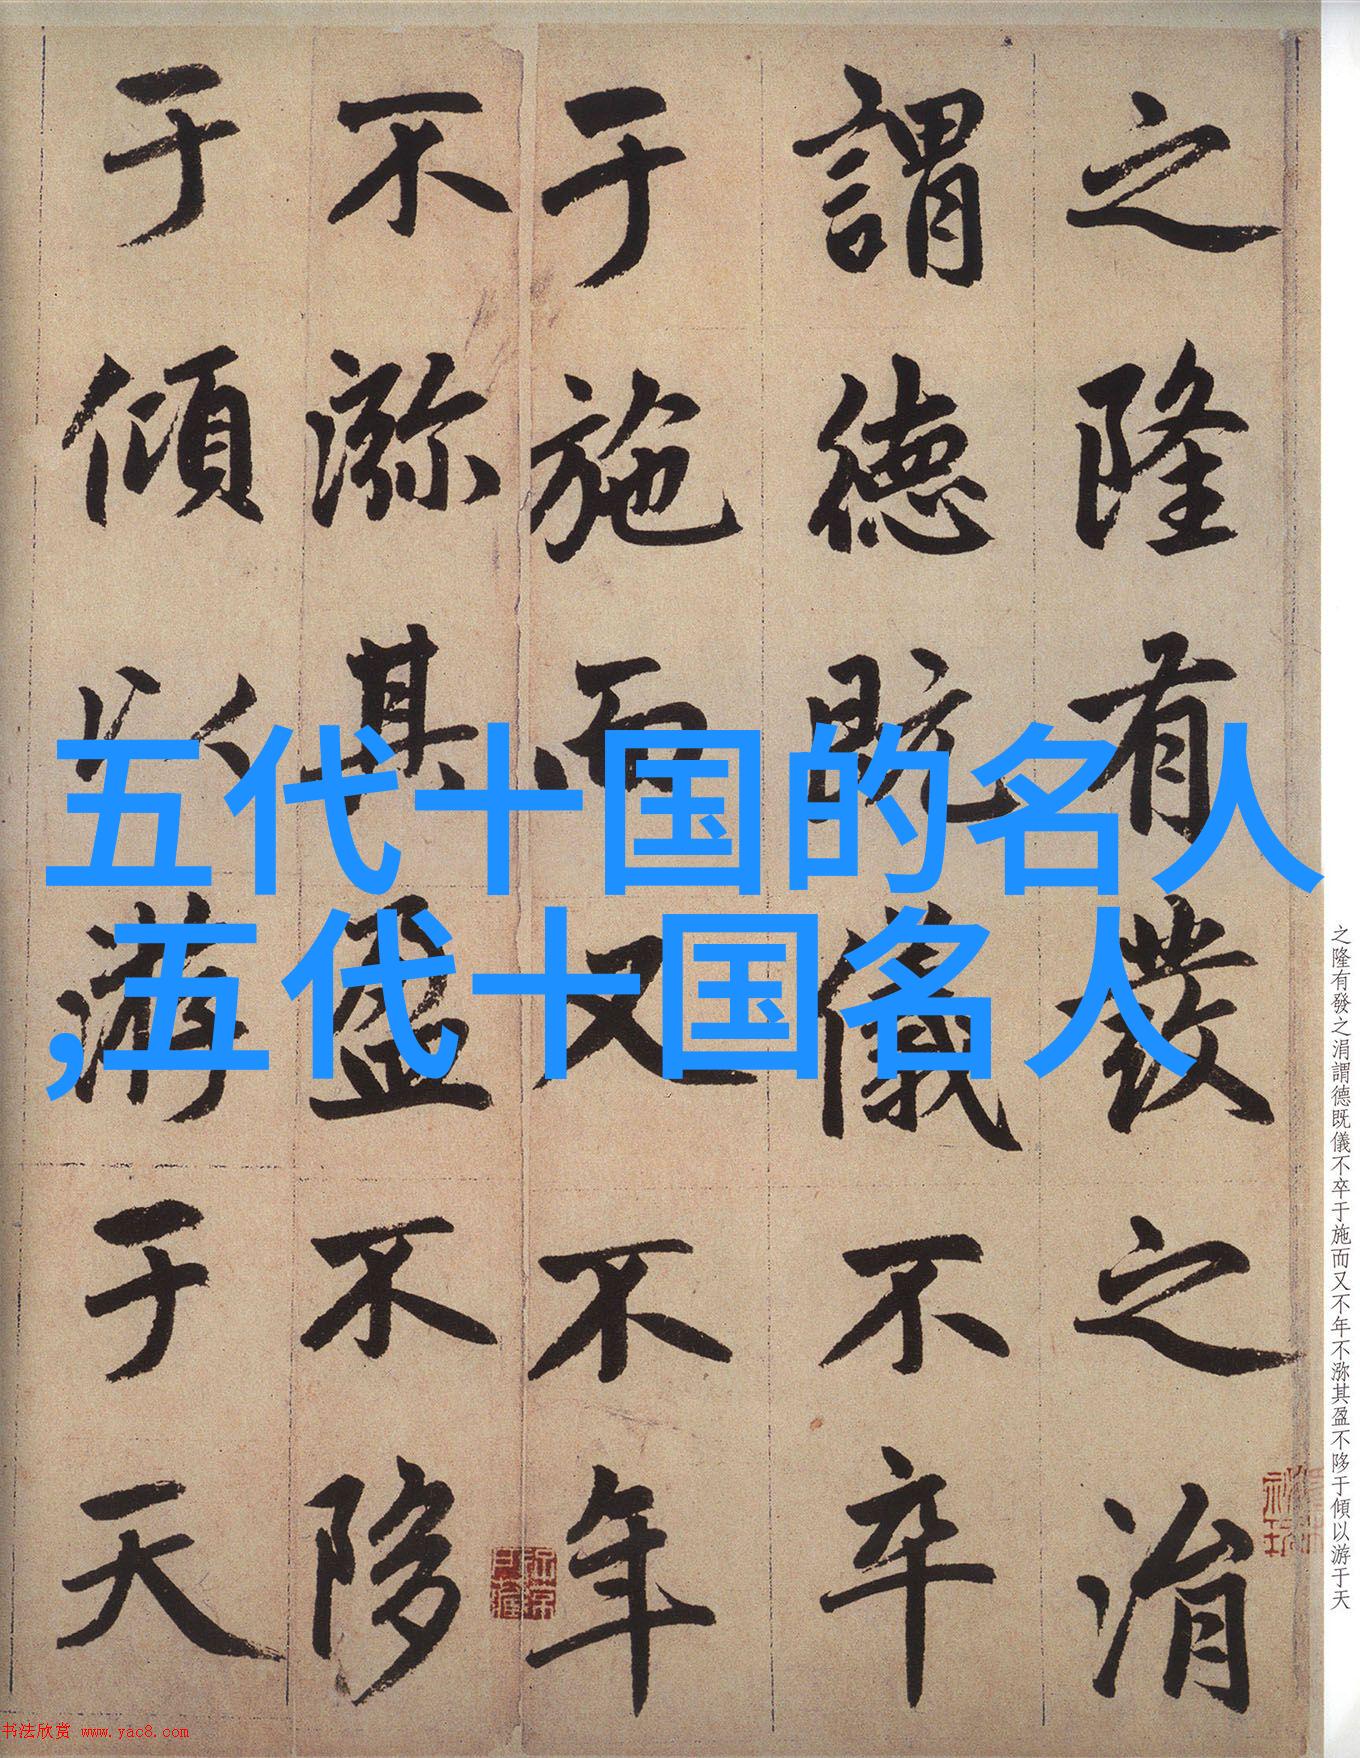 之隆有發之涓
謂德既儀不卒
于施而又不年
不㳽其盈不陊
于傾以游于天
五代十国的名人
,五代十国名人
之隆有發之涓謂德既儀不卒于施而又不年不㳽其盈不陊于傾以游于天
书法欣赏 www.yac8.com